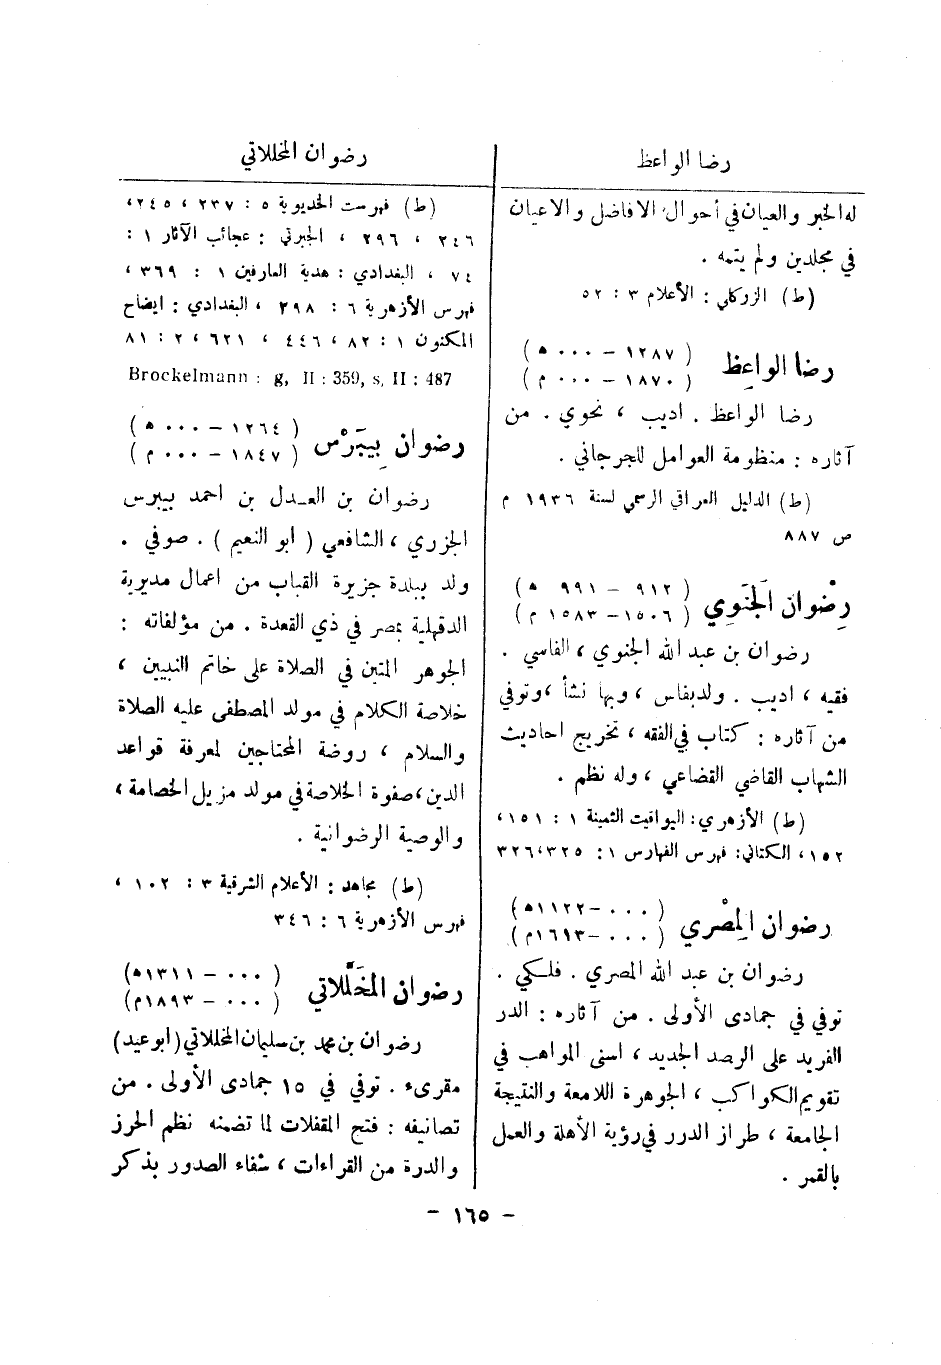 رضا الواعظ
له الخبر والعيان في أحوال الافاضل والاعيان
في مجلدين ولم يتمه .
(ط) الزركلي : الأعلام ٣ : ٥٢
رضا الواعظ ( ١٢٨٧ - ٠٠٠ ه )
( ١٨٧٠ - ٠٠٠ م )
رضا الواعظ . اديب ، نحوي . من
آثاره : منظومة العوامل للجرجاني .
(ط) الدليل العراقي الرسمي لسنة ١٩٣٦ م
ص ٨٨٧
رِضْوان الجَنَوِي ( ٩١٢ - ٩٩١ ه )
( ١٥٠٦ - ١٥٨٣ م )
رضوان بن عبد الله الجنوي ، الفاسي .
فقيه ، اديب . ولد بفاس ، وبها نشأ ، وتوفي
من آثاره : كتاب في الفقه ، تخريج احاديث
الشهاب القاضي القضاعي ، وله نظم .
(ط) الأزهري : اليواقيت الثمينة ١ : ١٥١ ،
١٥٢ ، الكتاني : فهرس الفهارس ١ : ٣٢٥ ، ٣٢٦
رضوان المِصْري ( ٠٠٠ - ١١٢٢ ه )
( ٠٠٠ - ١٦١٣ م )
رضوان بن عبد الله المصري . فلكي .
توفي في جمادى الأولى . من آثاره : الدر
الفريد على الرصد الجديد ، اسنى المواهب في
تقويم الكواكب ، الجوهرة اللامعة والنتيجة
الجامعة ، طراز الدرر في رؤية الأهلة والعمل
بالقمر .
رضوان المخللاتي
(ط) فهرست الخديوية ٥ : ٢٣٧ ، ٢٤٥ ،
٢٤٦ ، ٢٩٦ ، الجبرتي : عجائب الآثار ١ :
٧٤ ، البغدادي : هدية العارفين ١ : ٣٦٩ ،
فهرس الأزهرية ٦ : ٢٩٨ ، البغدادي : ايضاح
المكنون ١ : ٨٢ ، ٤٤٦ ، ٦٢١ ، ٢ : ٨١
Brockelmann : g, II : 359, s, II : 487
رضوان بِيبَرْس ( ١٢٦٤ - ٠٠٠ ه )
( ١٨٤٧ - ٠٠٠ م )
رضوان بن العدل بن احمد بيبرس
الجزري ، الشافعي ( ابو النعيم ) . صوفي .
ولد ببلدة جزيرة القباب من اعمال مديرية
الدقهلية بمصر في ذي القعدة . من مؤلفاته :
الجوهر المتين في الصلاة على خاتم النبيين ،
خلاصة الكلام في مولد المصطفى عليه الصلاة
والسلام ، روضة المحتاجين لمعرفة قواعد
الدين ، صفوة الخلاصة في مولد مزيل الخصامة ،
والوصية الرضوانية .
(ط) مجاهد : الأعلام الشرقية ٣ : ١٠٢ ،
فهرس الأزهرية ٦ : ٣٤٦
رضوان المخَلَّلاتي ( ٠٠٠ - ١٣١١ ه )
( ٠٠٠ - ١٨٩٣ م )
رضوان بن محمد بن سليمان المخللاتي (ابو عيد)
مقرىء . توفي في ١٥ جمادى الأولى . من
تصانيفه : فتح المقفلات لما تضمنه نظم الحرز
والدرة من القراءات ، شفاء الصدور بذكر
- ١٦٥ -